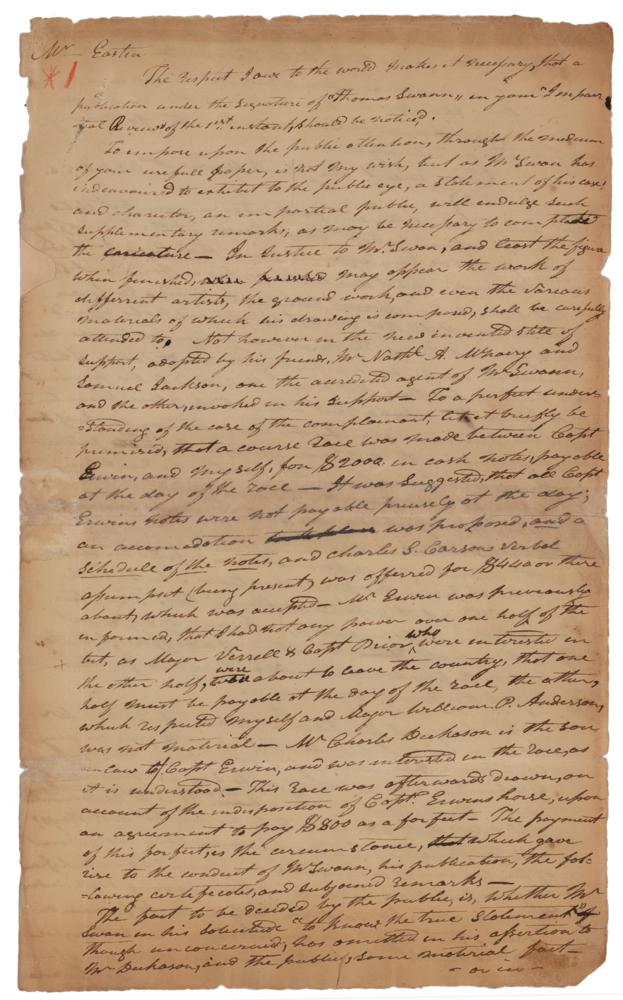 Mr. Eastin
* 1
The respect I owe to the world makes it necessary, that a
publication under the signature of "Thomas Swann" in your "Impar-
tial Review" of the 1st. instant, should be noticed.
To impose upon the public attention, through the medium
of your usefull paper, is not my wish, but as Mr Swan has
indeavoured to exhibit to the public eye, a statement of his case,
and charector, an impartial public, will indulge such
supplementary remarks, as may be necessary to complete
the caricature — In Justice to Mr. Swan, and least the figure
when finished, may appear the work of
different artists, the ground work, and even the various
materials of which his drawing is composed, shall be carefully
attended to, Not however in the new invented stile of
support, adopted by his friends, Mr Nathl. A. McNairy and
Samuel Jackson, one the accredited agent of Mr Swann,
and the other, invoked in his support — To a perfect under-
=standing of the case of the complainant, let it briefly be
premised, that a course race was made between Capt
Erwin, and myself, for $2000. in cash notes, payable
at the day of the race — It was suggested, that all Capt
Erwins notes were not payable presisely at the day;
an accomodation was proposed, and a
schedule of the notes, and charles S. Carsons verbal
assumpset (being present) was offerred for $440 or there
about, which was accepted — Mr Erwin was previously
informed, that I had not any power over one half of the
bet, as Major Verrell & Capt Prior, who were interested in
the other half, were about to leave the country, that one
half must be payable at the day of the race, the other,
which respected myself and Major William P. Anderson,
was not material — Mr Charles Dickason is the son
in law to Capt Erwin, and was interested in the race, as
it is understood. — This race was afterwards drawn, on
account of the indisposition of Capt. Erwins horse, upon
an agreement to pay $800 as a forfeit — The payment
of this forfeit, is the circumstance, that which gave
rise to the conduct of Mr Swann, his publication, the fol-
=lowing certificates, and subjoined remarks —
The fact to be decided by the public, is, whether Mr
Swan in his solicitude "to know the true statement" of
though unconcerned, has omitted in his assertion to
Mr Dickason, and the public, some material fact —
— or in —